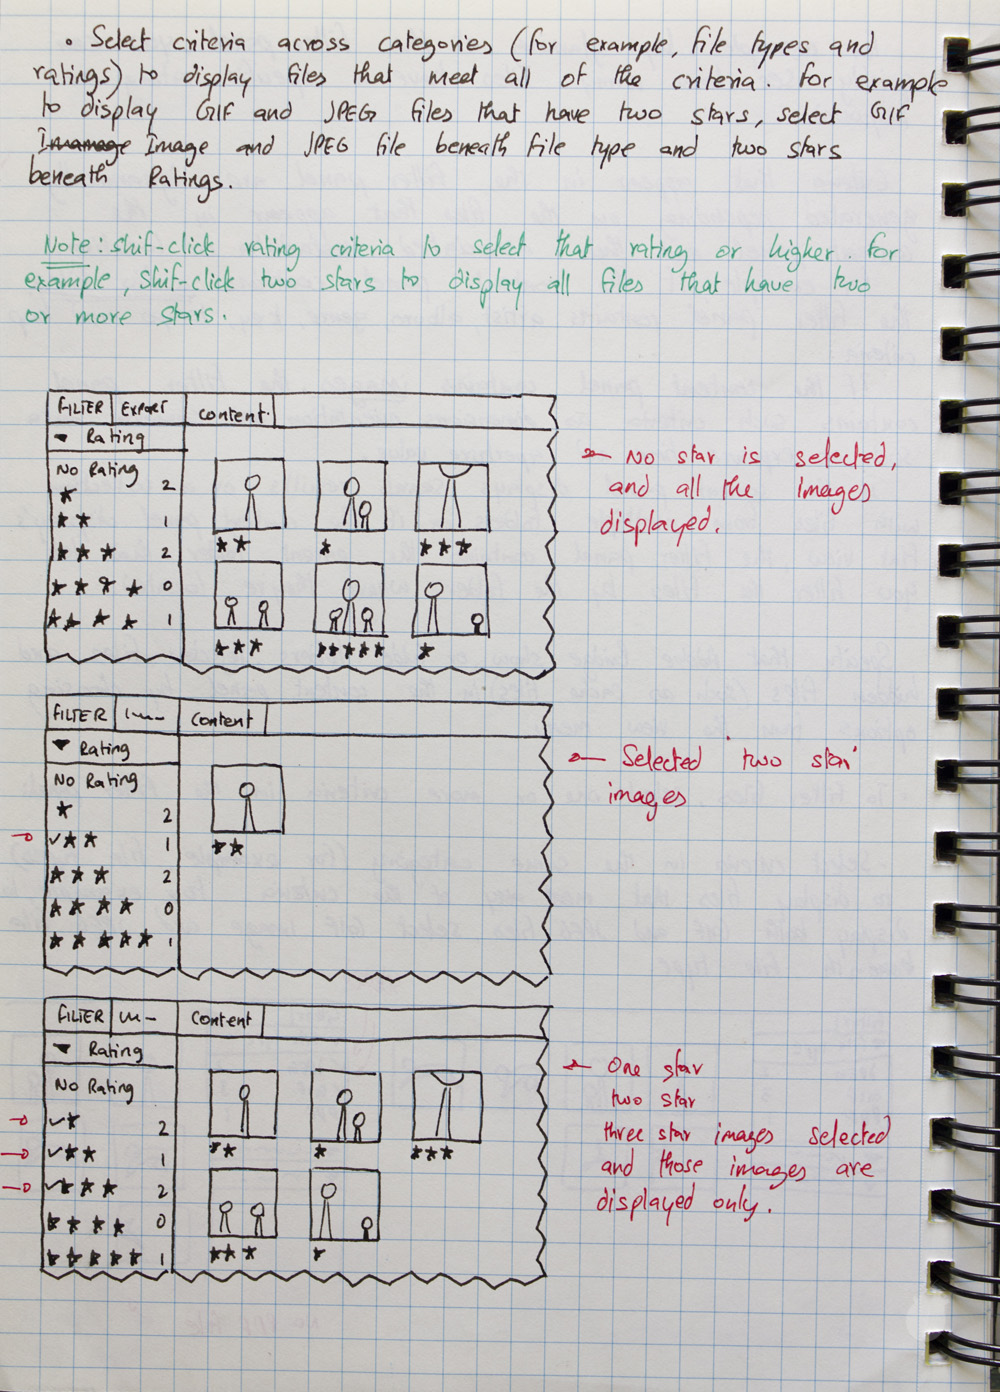 • Select criteria across categories (for example, file types and
ratings) to display files that meet all of the criteria. For example
to display GIF and JPEG files that have two stars, select GIF
Image and JPEG file beneath file type and two stars
beneath Ratings.
Note: shif-click rating criteria to select that rating or higher. For
example, shif-click two stars to display all files that have two
or more stars.
FILTER EXPORT Content
Rating
No Rating
★ 2
★★ 1
★★★ 2
★★★★ 0
★★★★ 1
★★ ★ ★★★
★★★ ★★★★★ ★
No star is selected,
and all the images
displayed.
FILTER Content
Rating
No Rating
★ 2
✓★★ 1
★★★ 2
★★★★ 0
★★★★★ 1
★★
Selected 'two star'
images
FILTER Content
Rating
No Rating
✓★ 2
✓★★ 1
✓★★★ 2
★★★★ 0
★★★★★ 1
★★ ★ ★★★
★★★ ★
One star
two star
three star images selected
and those images are
displayed only.